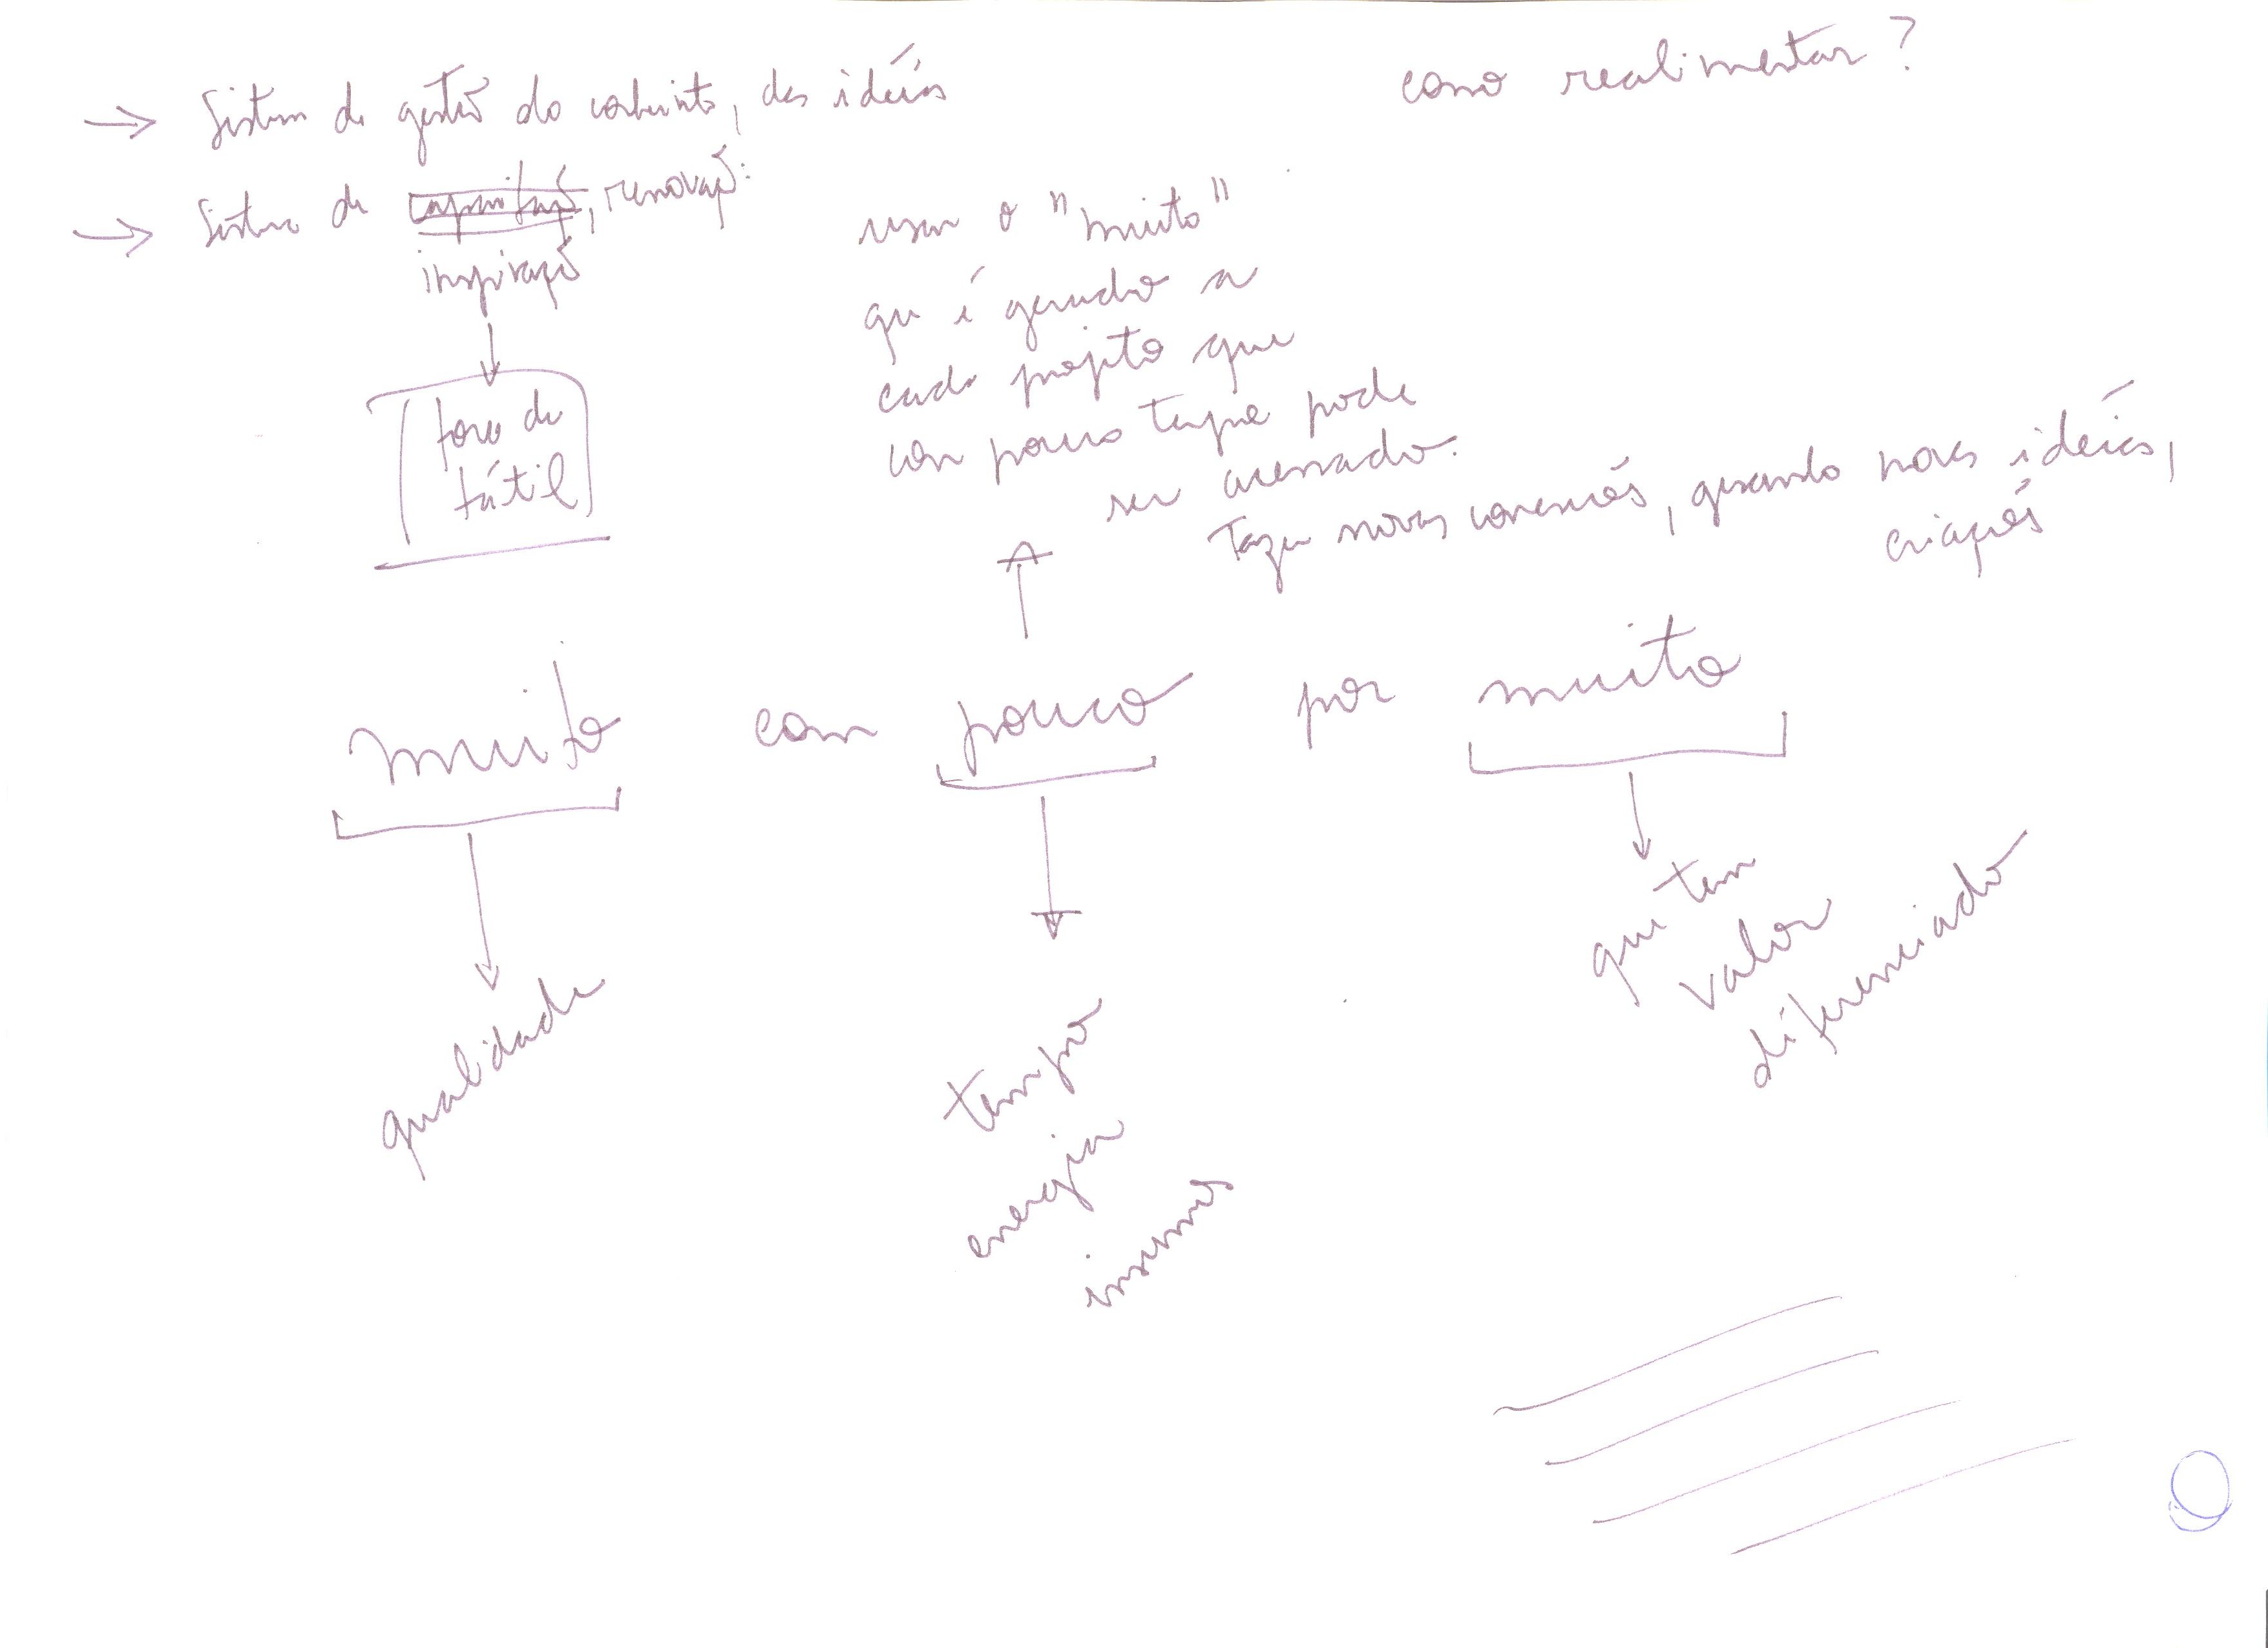 como realimentar?
→ Sistema de gestão do conhecimento, das idéias
→ Sistema de , renovação:
inspiração
fora da
tátil
usar o "muito"
que é gerado a
cada projeto que
com pouco tempo pode
ser acessado.
Fazer novas conexões, gerando novas idéias,
criações
muito com pouco por muito
qualidade
tempo
energia
insumos
que tem
valor
diferenciado